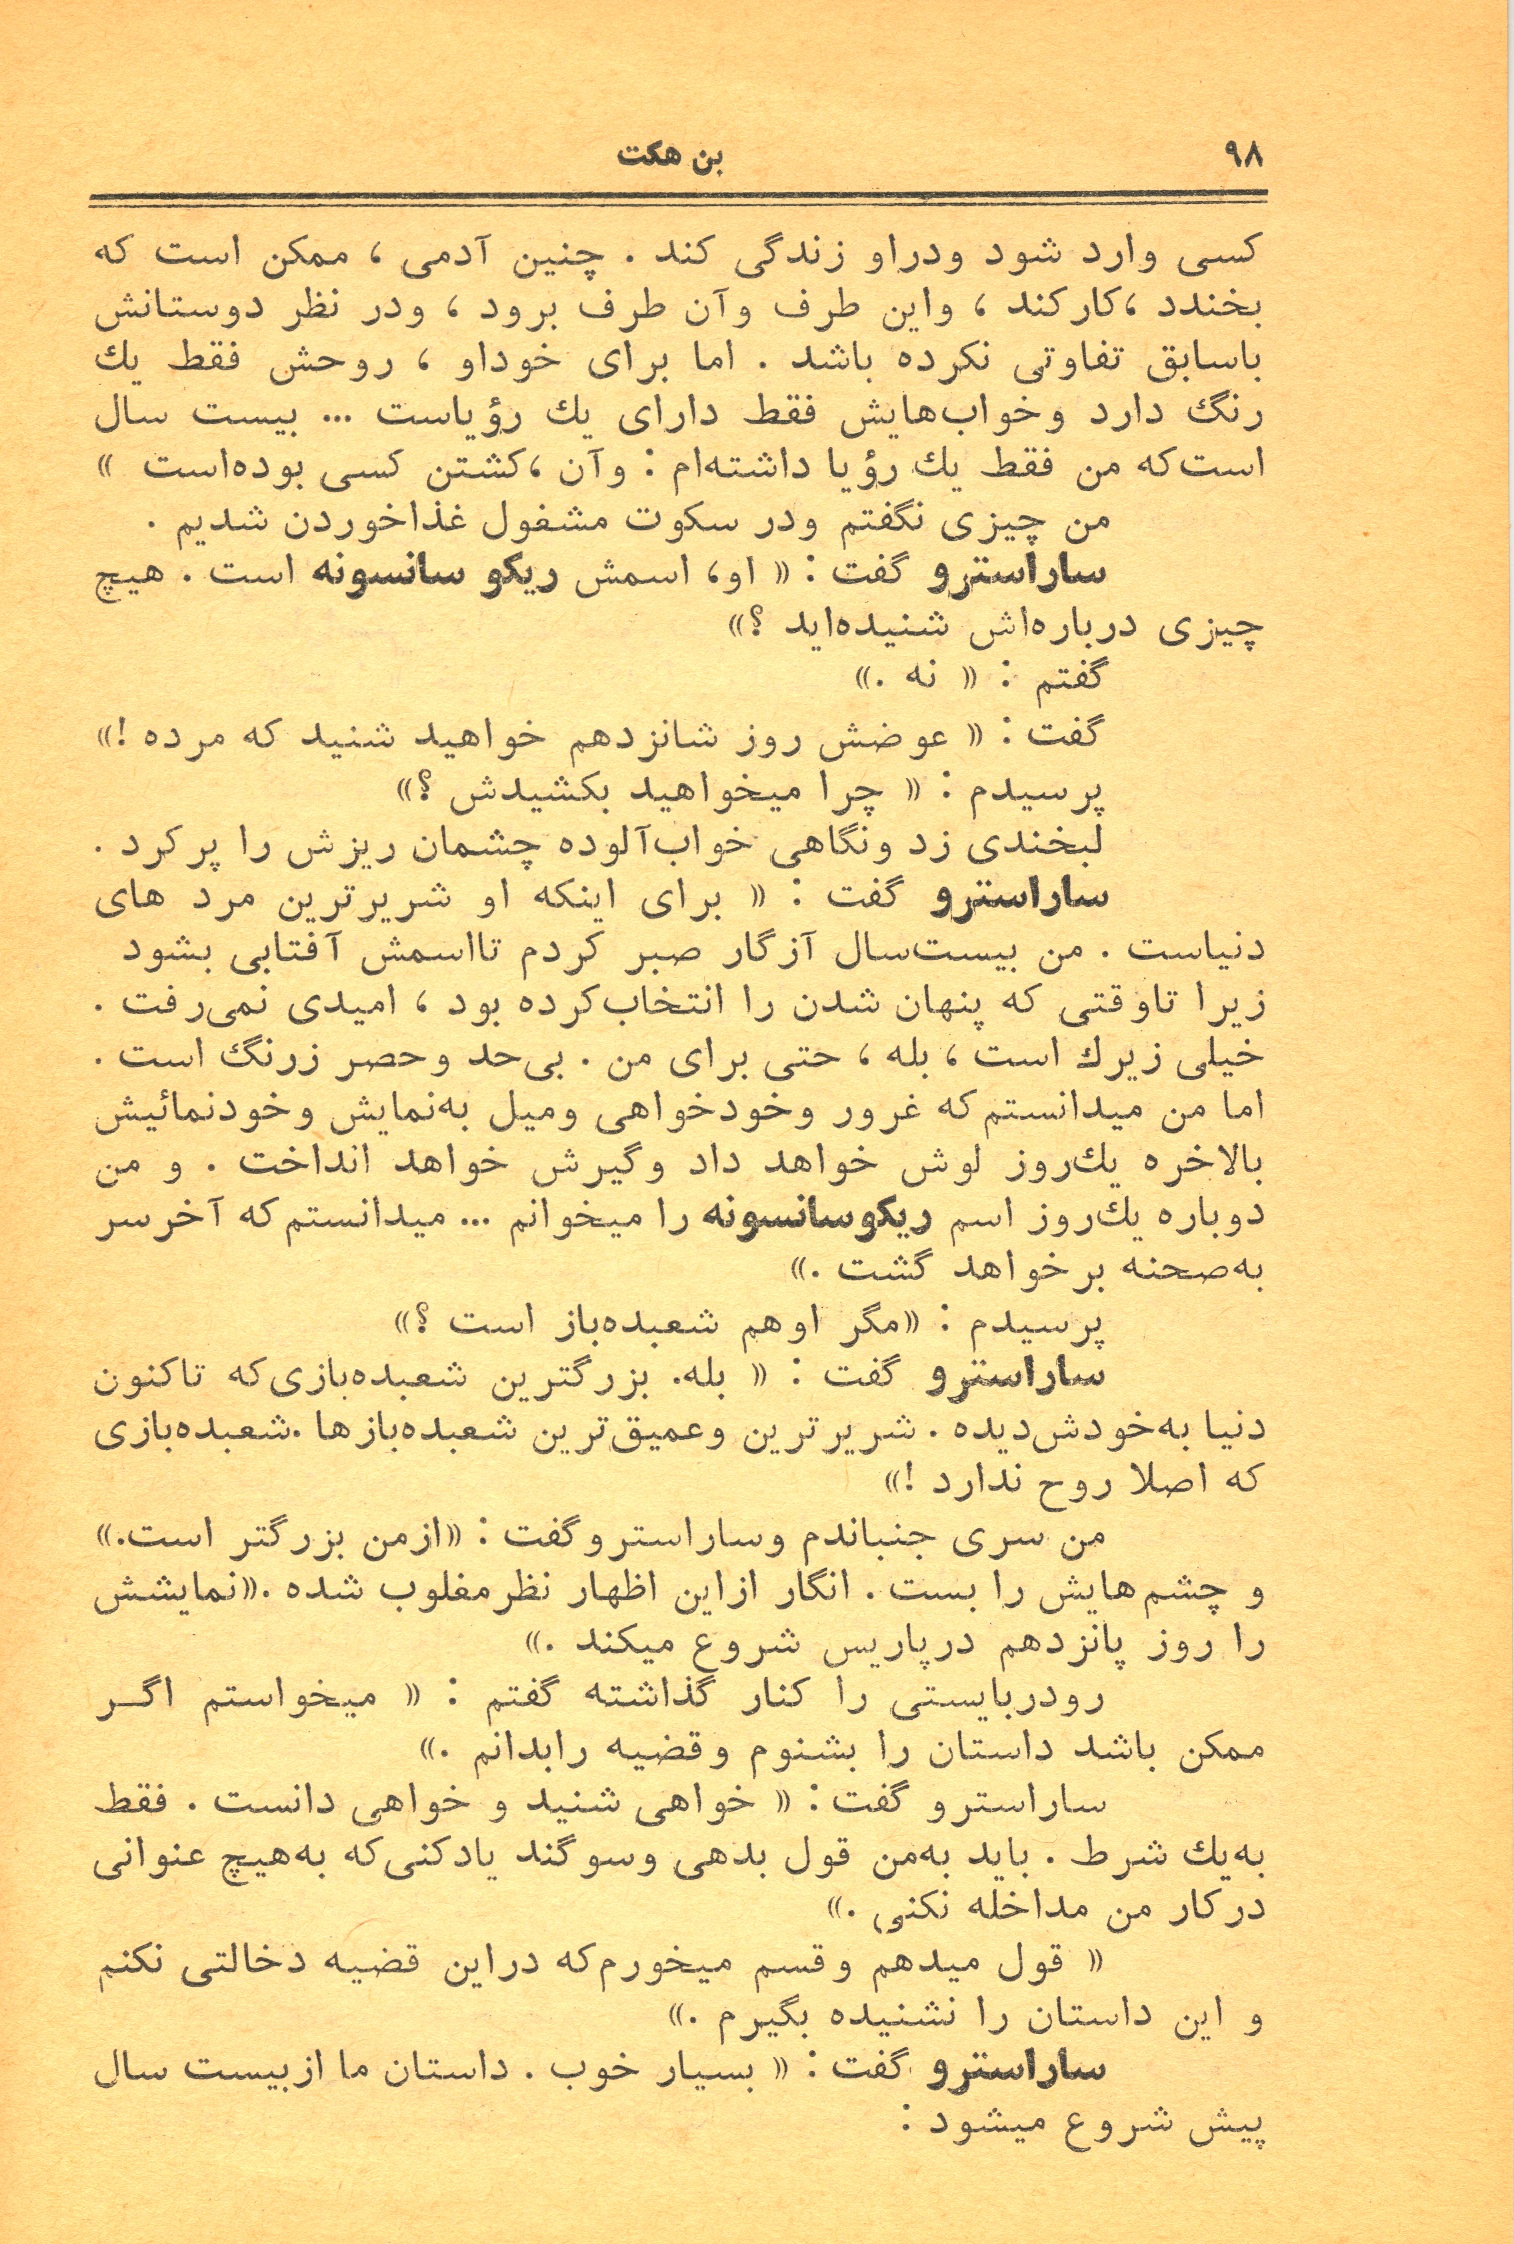 ۹۸
بن هکت
کسی وارد شود ودراو زندگی کند . چنین آدمی ، ممکن است که
بخندد ،کارکند ، واین طرف وآن طرف برود ، ودر نظر دوستانش
باسابق تفاوتی نکرده باشد . اما برای خوداو ، روحش فقط یك
رنگ دارد وخواب‌هایش فقط دارای یك رؤیاست ... بیست سال
است‌که من فقط یك رؤیا داشته‌ام : وآن ،کشتن کسی بوده‌است »
من چیزی نگفتم ودر سکوت مشغول غذاخوردن شدیم .
ساراسترو گفت : « او، اسمش ریکو سانسونه است . هیچ
چیزی درباره‌اش شنیده‌اید ؟»
گفتم : « نه .»
گفت : « عوضش روز شانزدهم خواهید شنید که مرده !»
پرسیدم : « چرا میخواهید بکشیدش ؟»
لبخندی زد ونگاهی خواب‌آلوده چشمان ریزش را پرکرد .
ساراسترو گفت : « برای اینکه او شریرترین مرد های
دنیاست . من بیست‌سال آزگار صبر کردم تااسمش آفتابی بشود
زیرا تاوقتی که پنهان شدن را انتخاب‌کرده بود ، امیدی نمی‌رفت .
خیلی زیرك است ، بله ، حتی برای من . بی‌حد وحصر زرنگ است .
اما من میدانستم‌که غرور وخودخواهی ومیل به‌نمایش وخودنمائیش
بالاخره یك‌روز لوش خواهد داد وگیرش خواهد انداخت . و من
دوباره یك‌روز اسم ریکوسانسونه را میخوانم ... میدانستم‌که آخرسر
به‌صحنه برخواهد گشت .»
پرسیدم : «مگر اوهم شعبده‌باز است ؟»
ساراسترو گفت : « بله. بزرگترین شعبده‌بازی‌که تاکنون
دنیا به‌خودش‌دیده . شریرترین وعمیق‌ترین شعبده‌بازها .شعبده‌بازی
که اصلا روح ندارد !»
من سری جنباندم وساراستروگفت : «ازمن بزرگتر است.»
و چشم‌هایش را بست . انگار ازاین اظهار نظرمغلوب شده .«نمایشش
را روز پانزدهم درپاریس شروع میکند .»
رودربایستی را کنار گذاشته گفتم : « میخواستم اگــر
ممکن باشد داستان را بشنوم وقضیه رابدانم .»
ساراسترو گفت : « خواهی شنید و خواهی دانست . فقط
به‌یك شرط . باید به‌من قول بدهی وسوگند یادکنی‌که به‌هیچ عنوانی
درکار من مداخله نکنی .»
« قول میدهم وقسم میخورم‌که دراین قضیه دخالتی نکنم
و این داستان را نشنیده بگیرم .»
ساراسترو گفت : « بسیار خوب . داستان ما ازبیست سال
پیش شروع میشود :